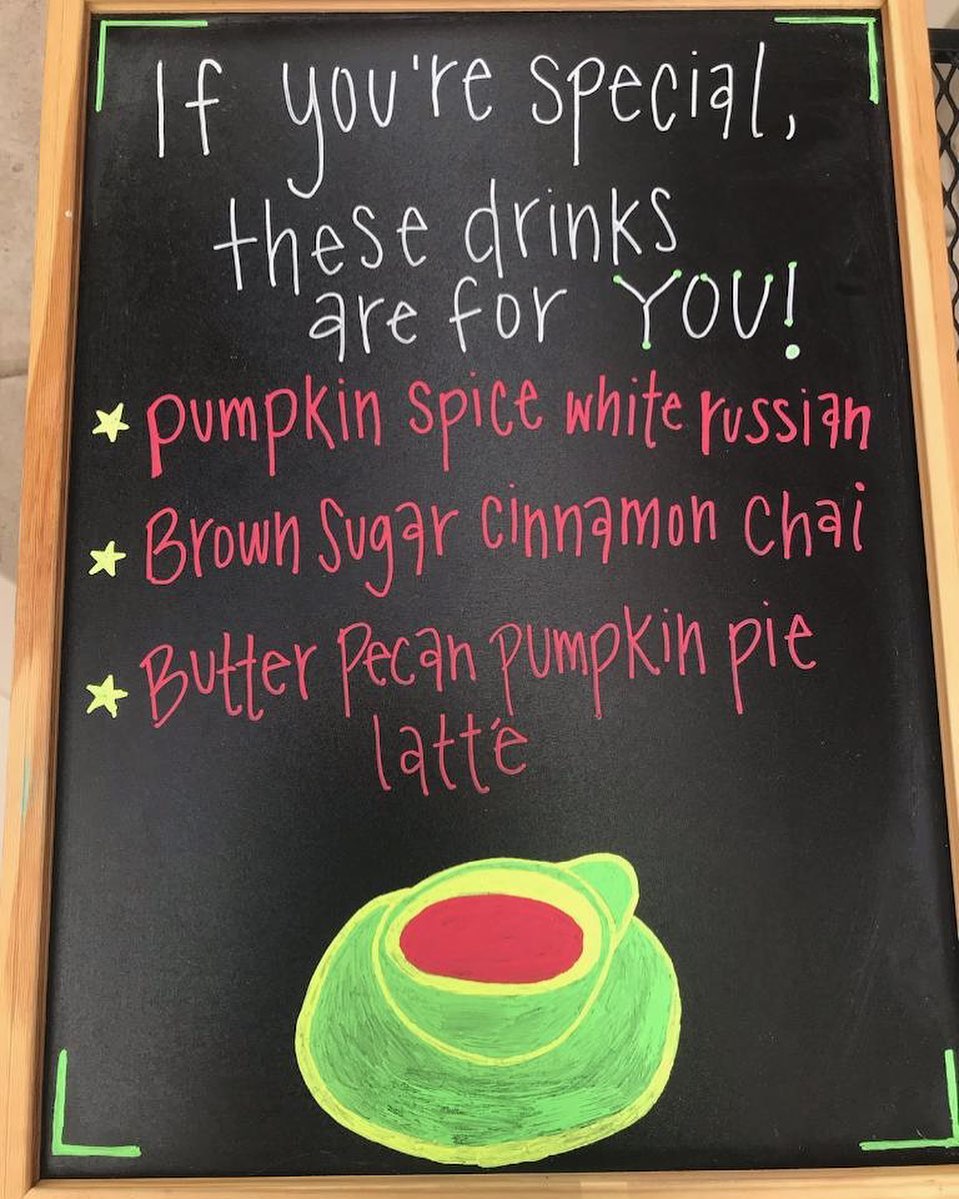 If you're special,
these drinks
are for YOU!
pumpkin spice white russian
Brown Sugar cinnamon chai
Butter Pecan pumpkin pie
latté